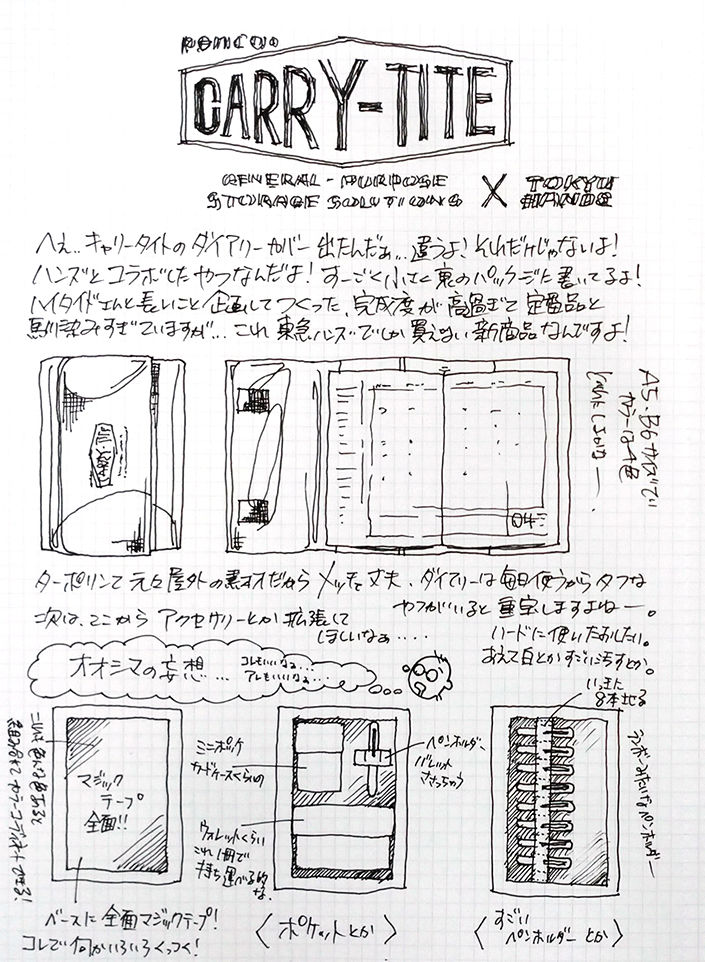 PENCO
CARRY-TITE
GENERAL-PURPOSE
STORAGE SOLUTIONS
X
TOKYU
HANDS
へぇ..キャリータイトのダイアリーカバー出たんだぁ...違うよ!それだけじゃないよ!
ハンズとコラボしたやつなんだよ!すーごく小さく裏のパッケージに書いてるよ!
ハイタイドさんと長いこと企画してつくった、完成度が高過ぎて定番品と
馴染みすぎていますが...これ東急ハンズでしか買えない新商品なんですよ!
CARRY-TITE
A5・B6サイズで
カラーは4色
どれにしようかなー。
ターポリンて元々屋外の素材だからメッチャ丈夫、ダイアリーは毎日使うからタフな
やつがいると重宝しますよねー。
次は、ここからアクセサリーとか拡張して
ほしいなぁ....
ハードに使いたおしたい。
あえて白とかすごい汚すとか。
オオシマの妄想...
コレもいいなぁ...
アレもいいなぁ...
これは色んな色あると
組み合わせてカラーコーディネートできる!
マジック
テープ
全面!!
ベースに全面マジックテープ!
コレで何かいろいろくっつく!
ミニポッケ
カードケースくらいの
ウォレットくらい
これ1冊で
持ち運べる的
な。
ペンホルダー
バレット
ささっちゃう
〈ポケットとか〉
いっきに
8本挿る
ランボーみたいなペンホルダー
〈すごい
ペンホルダーとか〉